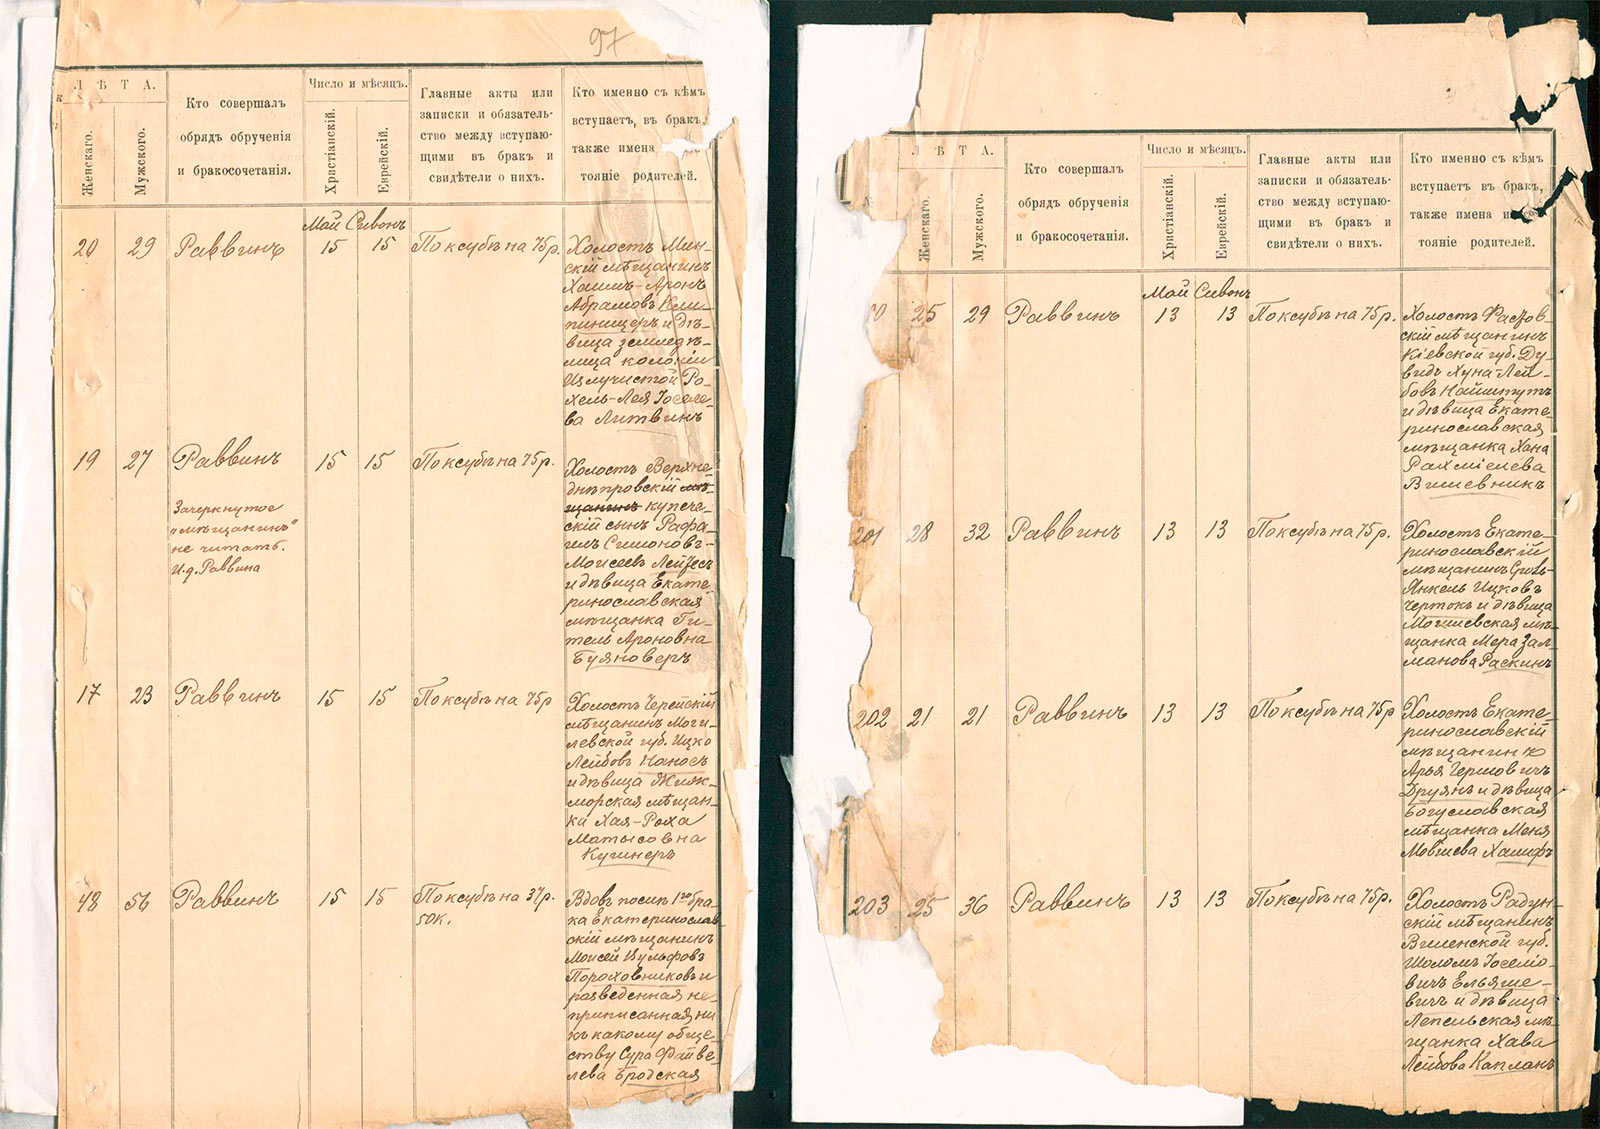 97
Л Ѣ Т А.
Женскаго.
Мужского.
Кто совершалъ
обрядъ обрученія
и бракосочетанія.
Число и мѣсяцъ.
Христіанскій.
Еврейскій.
Главные акты или
записки и обязатель-
ство между вступаю-
щими въ бракъ и
свидѣтели о нихъ.
Кто именно съ кѣмъ
вступаетъ, въ бракъ,
также имена
тояніе родителей.
Май Сивонъ
20 29 Раввинъ 15 15 По ксубѣ на 75 р.
Холостъ Мин-
скій мѣщанинъ
Хаимъ-Аронъ
Абрамовъ
и дѣ-
вица земледѣ-
лица колоніи
Излучистой Ро-
хель-Лея Іоселе-
ва Литвинъ
19 27 Раввинъ 15 15 По ксубѣ на 75 р.
Зачеркнутое
„мѣщанинъ"
не читать.
И.д. Раввина
Холостъ Верхне-
днѣпровскій мѣ-
щанинъ купече-
скій сынъ Рафа-
илъ Симоновъ-
Моисеевъ Лейзесъ
и дѣвица Екате-
ринославская
мѣщанка Ги-
тель Ароновна
Буяноверъ
17 23 Раввинъ 15 15 По ксубѣ на 75 р
Холостъ Черейскій
мѣщанинъ Моги-
левской губ. Ицко
Лейбовъ Наносъ
и дѣвица Жиж-
морская мѣщан-
ка Хая-Роха
Матысовна
Кушнеръ
48 56 Раввинъ 15 15 По ксубѣ на 37 р.
50 к.
Вдовъ послѣ 1го бра-
ка Екатеринослав-
скій мѣщанинъ
Моисей Вульфовъ
Пороховниковъ и
разведенная не-
приписанная ни
къ какому обще-
ству Сура Файве-
лева Бродская
Л Ѣ Т А.
Женскаго.
Мужского.
Кто совершалъ
обрядъ обрученія
и бракосочетанія.
Число и мѣсяцъ.
Христіанскій.
Еврейскій.
Главные акты или
записки и обязатель-
ство между вступаю-
щими въ бракъ и
свидѣтели о нихъ.
Кто именно съ кѣмъ
вступаетъ въ бракъ,
также имена и
тояніе родителей.
Май Сивонъ
25 29 Раввинъ 13 13 По ксубѣ на 75 р.
Холостъ Фастов-
скій мѣщанинъ
Кіевской губ. Ду-
видъ Хуна-Лей-
бовъ Найштутъ
и дѣвица Екате-
ринославская
мѣщанка Хана
Рахміелева
Вишевникъ
201 28 32 Раввинъ 13 13 По ксубѣ на 75 р.
Холостъ Екате-
ринославскій
мѣщанинъ Сроль-
Янкель Ицковъ
Чертокъ и дѣвица
Могилевская мѣ-
щанка Мера Зал-
манова Раскинъ
202 21 21 Раввинъ 13 13 По ксубѣ на 75 р
Холостъ Екате-
ринославскій
мѣщанинъ
Арья Гершовичъ
Друянъ и дѣвица
Богуславская
мѣщанка Меня
Мовшева Халифъ
203 25 36 Раввинъ 13 13 По ксубѣ на 75 р.
Холостъ Радун-
скій мѣщанинъ
Виленской губ.
Шоломъ Іоселіо-
вичъ Ельяше-
вичъ и дѣвица
Лепельская мѣ-
щанка Хава
Лейбова Капланъ